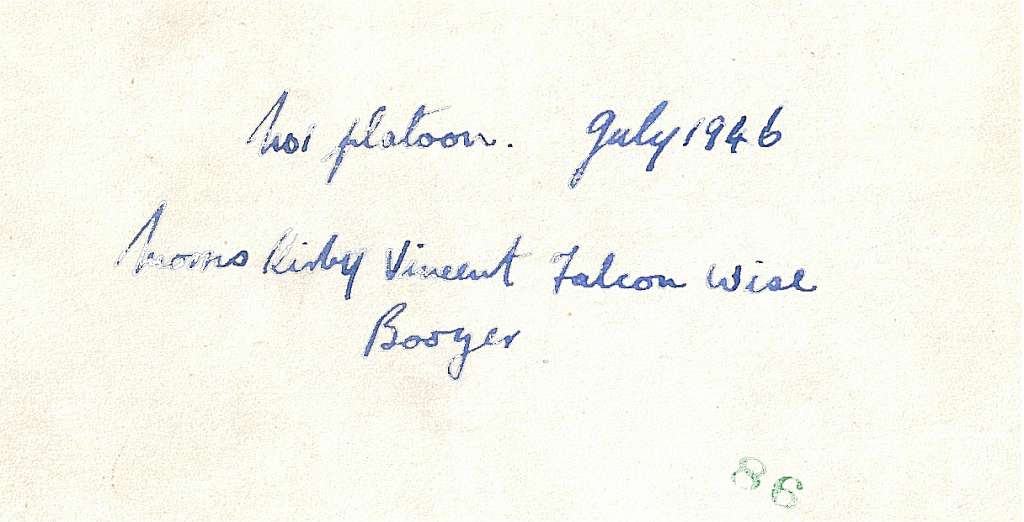 No1 platoon. July 1946
Morris Kirby Vincent Falcon Wise
Booyer
86